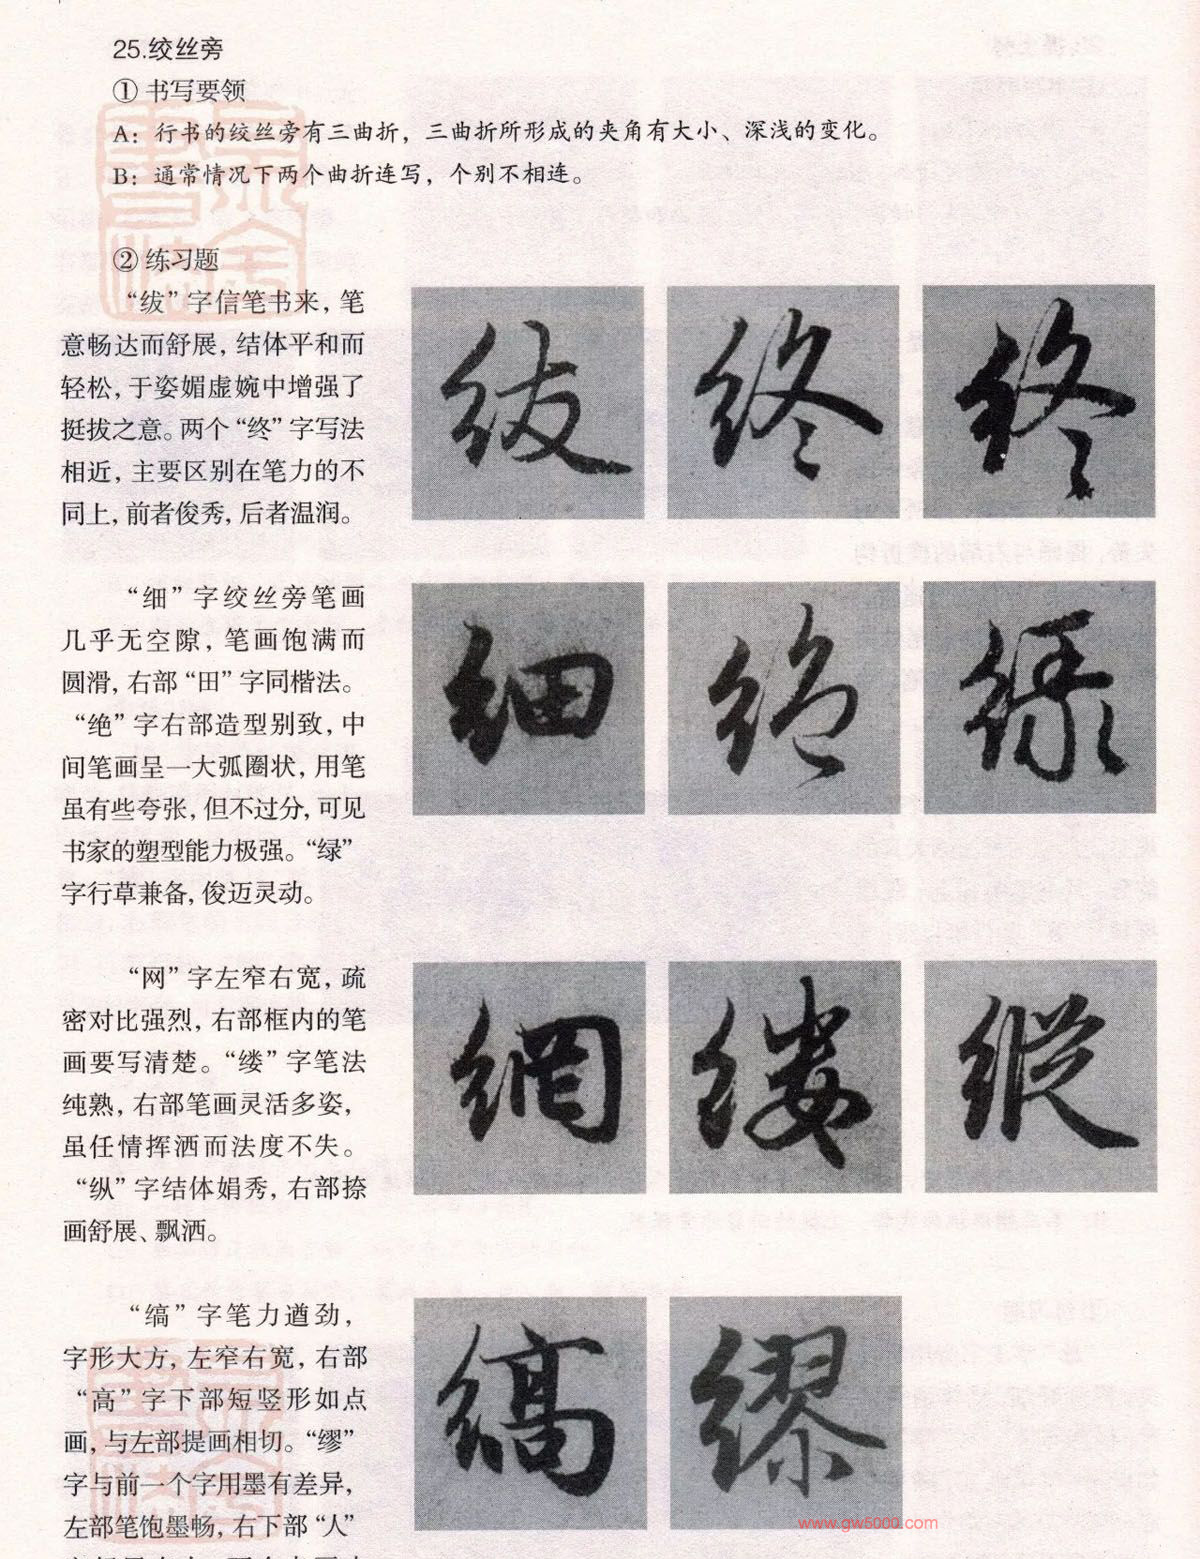 25.绞丝旁
① 书写要领
A：行书的绞丝旁有三曲折，三曲折所形成的夹角有大小、深浅的变化。
B：通常情况下两个曲折连写，个别不相连。
② 练习题
“绂”字信笔书来，笔
意畅达而舒展，结体平和而
轻松，于姿媚虚婉中增强了
挺拔之意。两个“终”字写法
相近，主要区别在笔力的不
同上，前者俊秀，后者温润。
绂 终 终
“细”字绞丝旁笔画
几乎无空隙，笔画饱满而
圆滑，右部“田”字同楷法。
“绝”字右部造型别致，中
间笔画呈一大弧圈状，用笔
虽有些夸张，但不过分，可见
书家的塑型能力极强。“绿”
字行草兼备，俊迈灵动。
細 絕 緑
“网”字左窄右宽，疏
密对比强烈，右部框内的笔
画要写清楚。“缕”字笔法
纯熟，右部笔画灵活多姿，
虽任情挥洒而法度不失。
“纵”字结体娟秀，右部捺
画舒展、飘洒。
網 縷 縱
“缟”字笔力遒劲，
字形大方，左窄右宽，右部
“高”字下部短竖形如点
画，与左部提画相切。“缪”
字与前一个字用墨有差异，
左部笔饱墨畅，右下部“人”
縞 繆
www.gw5000.com